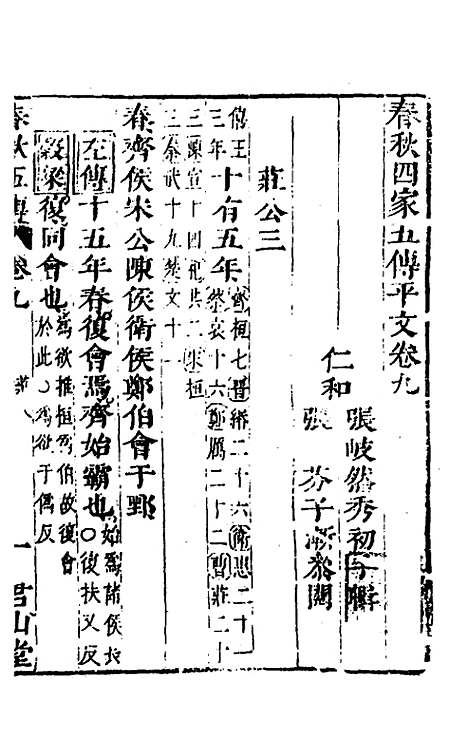 春秋四家五傳平文卷九
仁和
張岐然秀初
張芬子
莊公三
僖王三年十有五年齊桓七晉緡二十六衛惠二十
蔡哀十六鄭厲二十二曹莊二十
三陳宣十四杞共二宋桓
三秦武十九楚文十一
春齊侯宋公陳侯衛侯鄭伯會于鄄
左傳十五年春復會焉齊始霸也始爲諸侯長〇復扶又反
穀梁復同會也爲欲推桓爲伯故復會於此〇爲欲于僞反
春秋五傳
卷九
莊
一
君山堂